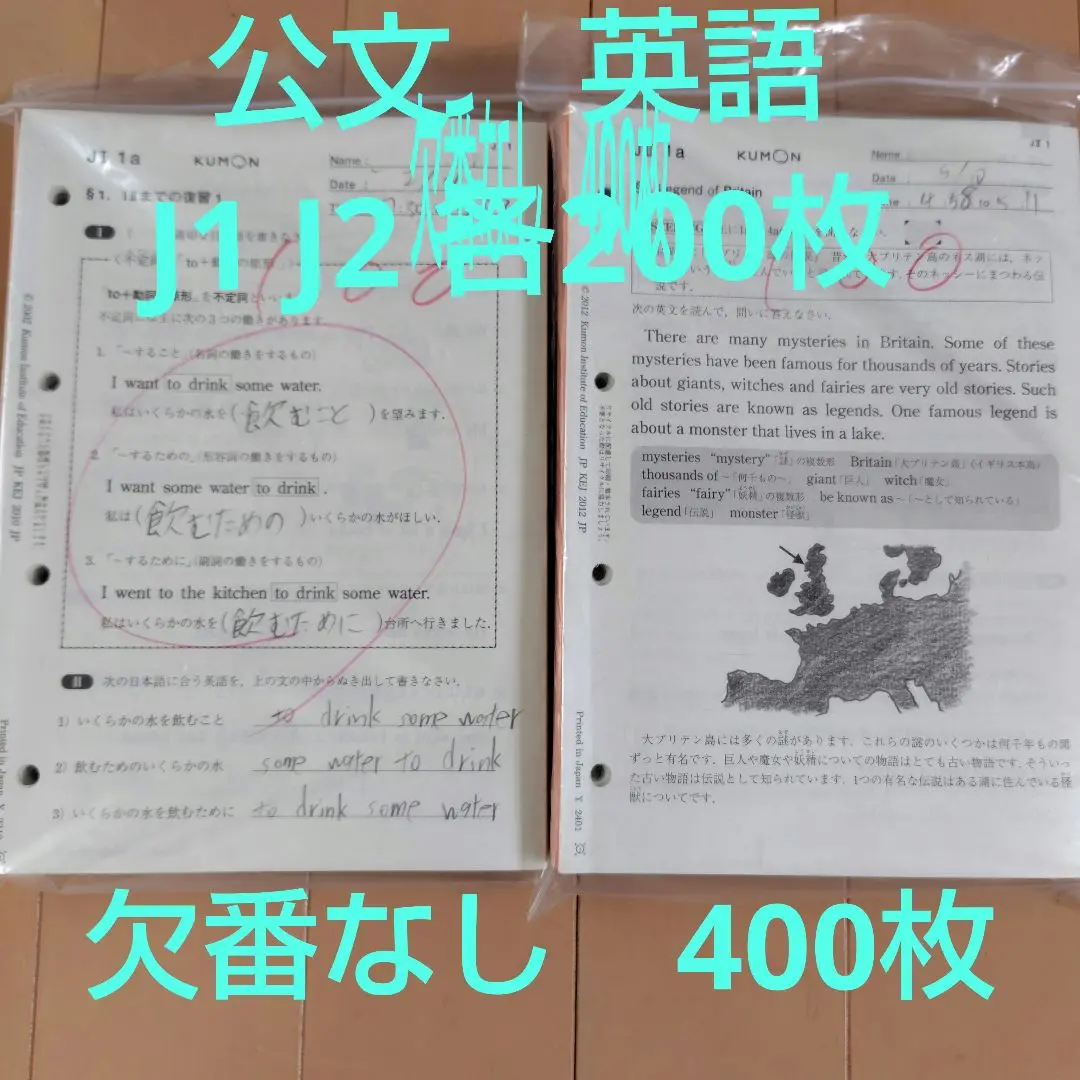 公文 英語
J1 J2 各200枚
JI 1a
KUMON
Name
Date
§1.
までの復習 1
I
「to+動詞の原形」を不定詞といい
不定詞には主に次の3つの働きがあります.
1. 「~すること」(名詞の働きをするもの)
I want to drink some water.
私はいくらかの水を(飲むこと)を望みます.
2. 「~するための」(形容詞の働きをするもの)
I want some water to drink.
私は(飲むための)いくらかの水がほしい.
3. 「~するために」(副詞の働きをするもの)
I went to the kitchen to drink some water.
私はいくらかの水を(飲むために)台所へ行きました.
II 次の日本語に合う英語を, 上の文の中からぬき出して書きなさい.
1) いくらかの水を飲むこと to drink some water
2) 飲むためのいくらかの水 some water to drink
3) いくらかの水を飲むために to drink some water
© 2002 Kumon Institute of Education JP KEJ 2010 JP
Printed in Japan
1a
KUMON
JII 1
Name
Date
4:58 to 5:11
Legend of Britain
次の英文を読んで, 問いに答えなさい.
There are many mysteries in Britain. Some of these
mysteries have been famous for thousands of years. Stories
about giants, witches and fairies are very old stories. Such
old stories are known as legends. One famous legend is
about a monster that lives in a lake.
mysteries “mystery”「謎」の複数形 Britain「大ブリテン島」(イギリス本島)
thousands of ~「何千もの~」 giant「巨人」 witch「魔女」
fairies “fairy”「妖精」の複数形 be known as ~「~として知られている」
legend「伝説」 monster「怪獣」
大ブリテン島には多くの謎があります. これらの謎のいくつかは何千年もの間
ずっと有名です. 巨人や魔女や妖精についての物語はとても古い物語です. そういっ
た古い物語は伝説として知られています. 1つの有名な伝説はある湖に住んでいる怪
獣についてです.
© 2012 Kumon Institute of Education JP KEJ 2012 JP
Printed in Japan Y 2401
欠番なし 400枚